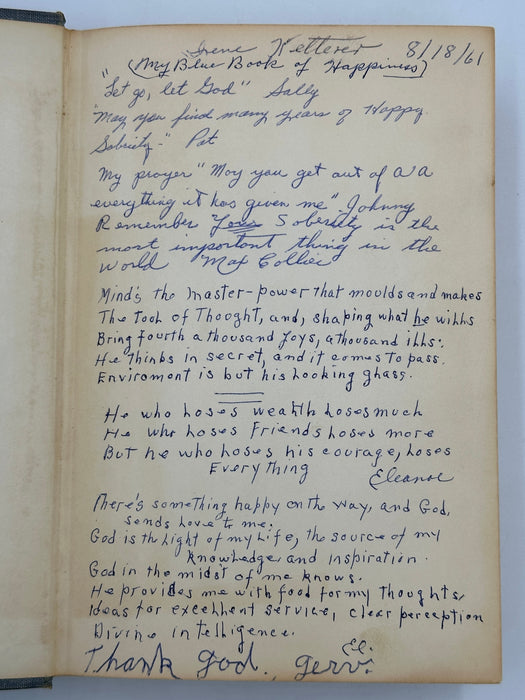 Irene Ketterer 8/18/61
(My Blue Book of Happiness)
"Let go, let God" Sally
"May you find many years of Happy
Sobriety-" Pat
My prayer "May you get out of AA
everything it has given me" Johnny
Remember Your Soberity is the
most important thing in the
world Max Collier
Mind's the master-power that moulds and makes
The Tool of Thought, and, shaping what he wills
Bring Fourth a thousand Joys, a thousand ills:.
He thinks in secret, and it comes to pass.
Enviroment is but his Looking glass.
He who Loses wealth Loses much
He who Loses Friends Loses more
But he who Loses his courage, Loses
Everything
Eleanor
There's something happy on the way, and God,
sends Love to me.
God is the Light of my Life, the source of my
Knowledge, and inspiration.
God in the midst of me knows.
He provides me with food for my thoughts,
Ideas for excellent service, clear perception
Divine intelligence.
El.
Thank God., Gerv.